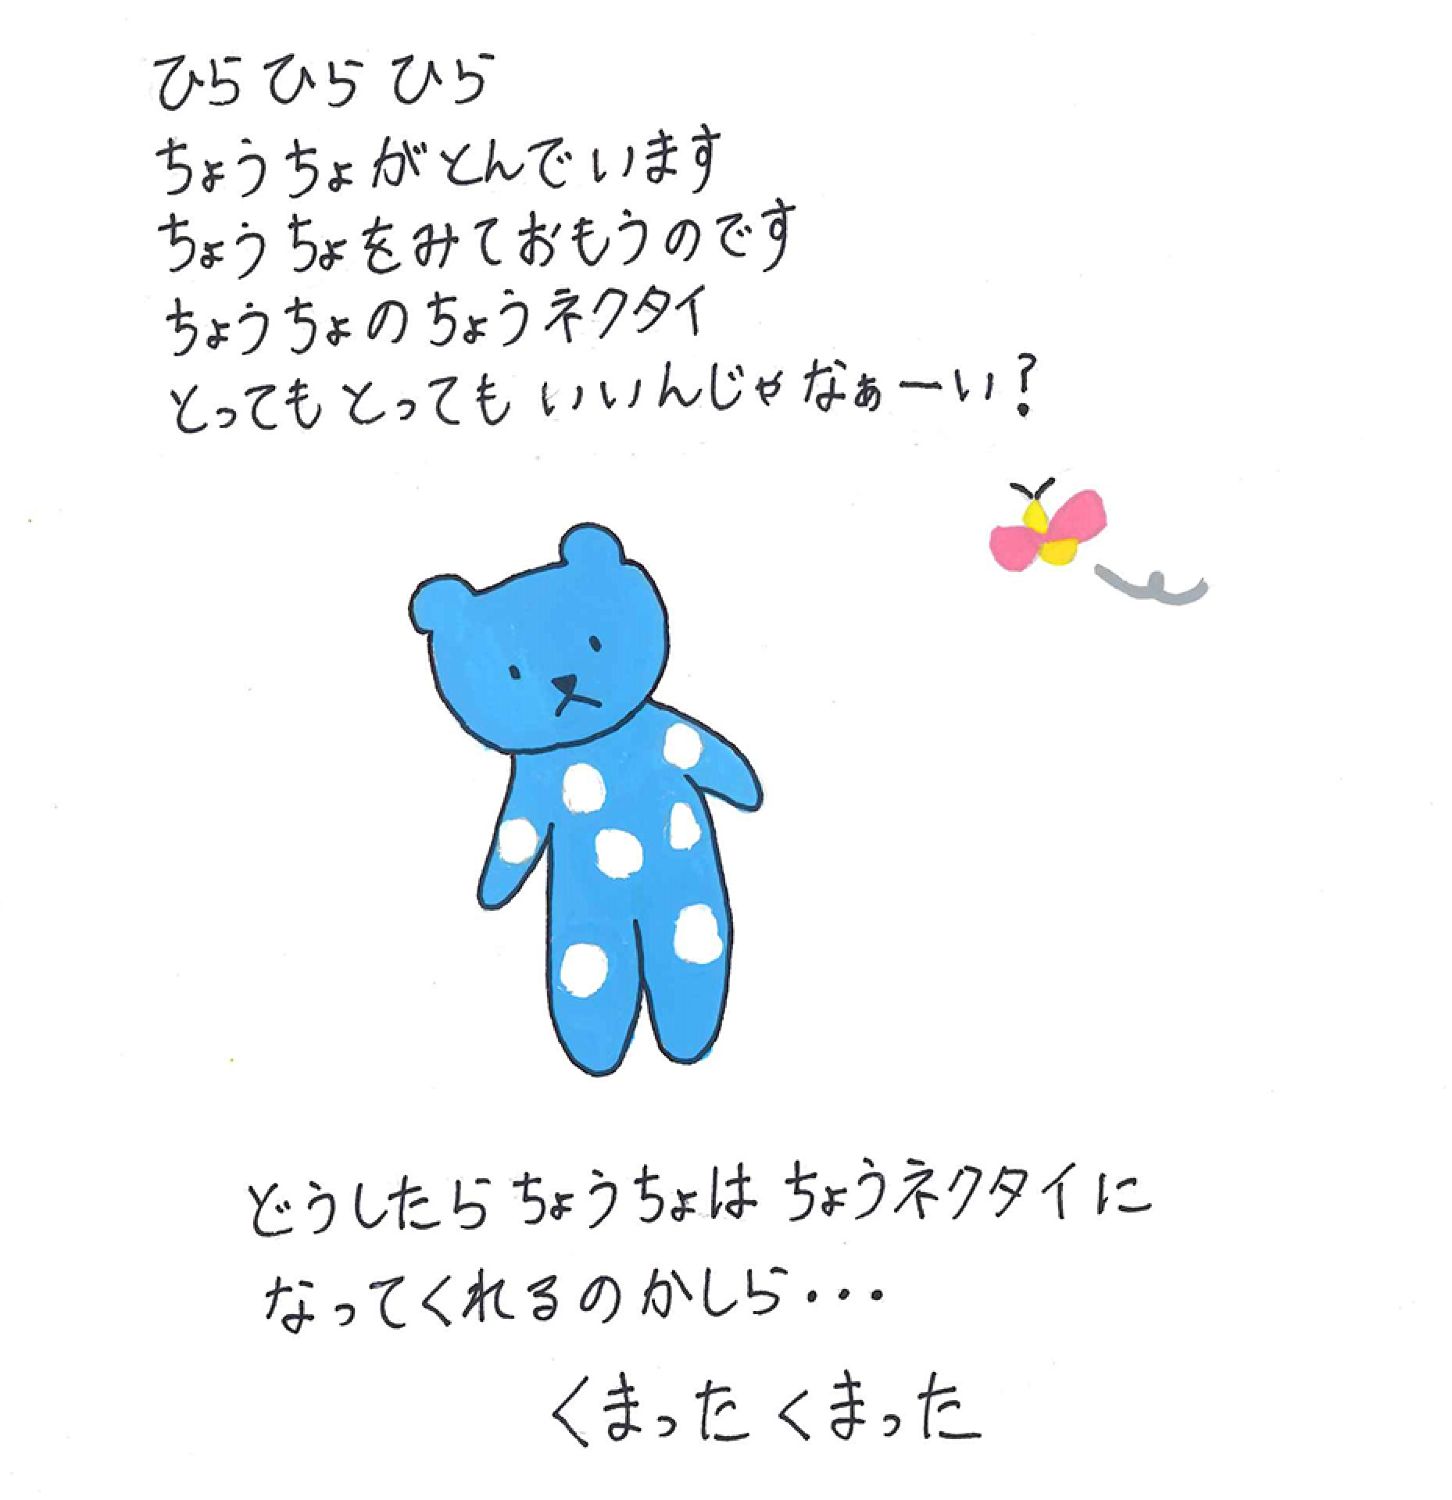 ひら ひら ひら
ちょうちょがとんでいます
ちょうちょをみておもうのです
ちょうちょのちょうネクタイ
とってもとっても いいんじゃなぁーい?
どうしたらちょうちょは ちょうネクタイに
なってくれるのかしら・・・
くまった くまった